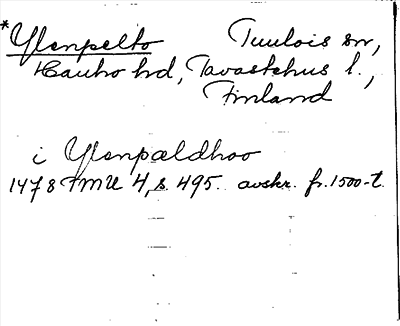 *Ylenpelto Tuulois sn,
Hauho hd, Tavastehus l.,
Finland
i Ylenpældhoo
1478 FMU 4, s. 495. avskr. fr. 1500-t.